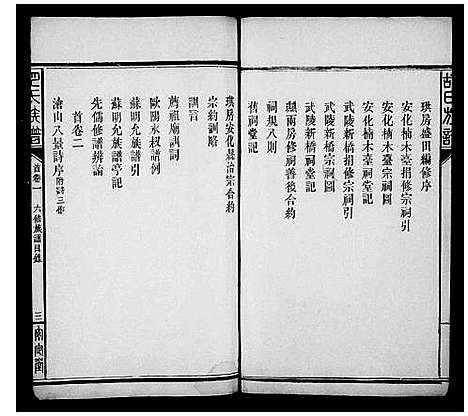 胡氏族譜
珙房盛田編修序
安化楠木臺捐修宗祠引
安化楠木臺宗祠圖
安化楠木臺祠堂記
武陵新橋捐修宗祠引
武陵新橋宗祠圖
武陵新橋祠堂記
與兩房修祠善後合約
祠規八則
舊祠堂記
珙房安化裁治宗合約
宗約訓略
訓言
薦祖廟訓詞
歐陽永叔譜例
蘇明允族譜序
蘇明允族譜亭記
先儒修譜辨論
首卷二
滄山八景詩序 附詩三作
胡氏族譜
首卷一
六修族譜目錄
三